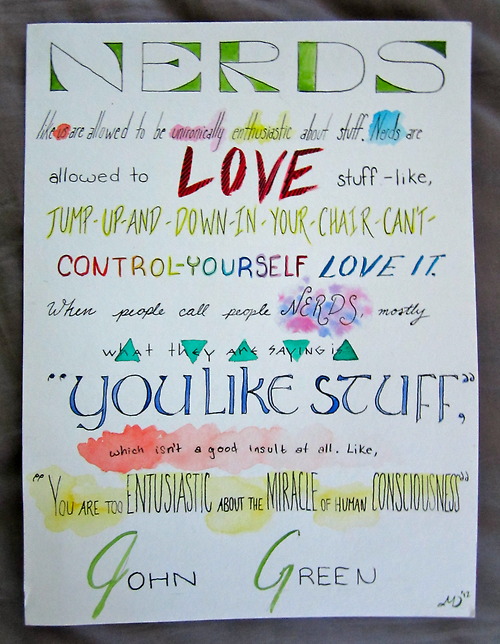 NERDS
like us are allowed to be unironically enthusiastic about stuff. Nerds are
allowed to LOVE stuff-like,
JUMP-UP-AND-DOWN-IN-YOUR-CHAIR-CAN'T-
CONTROL-YOURSELF LOVE IT.
When people call people NERDS, mostly
what they are SAYING is
"YOU LIKE STUFF,"
which isn't a good insult at all. Like,
"YOU ARE TOO ENTUSIASTIC ABOUT THE MIRACLE OF HUMAN CONSCIOUSNESS"
JOHN GREEN